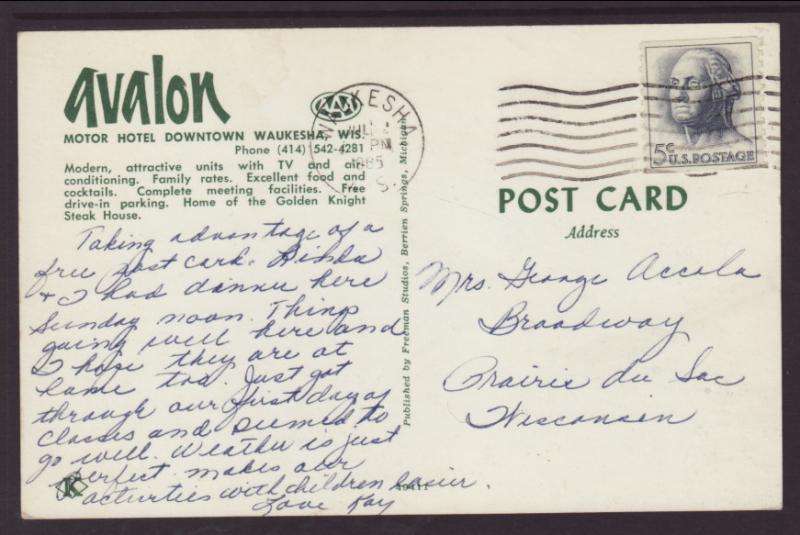 avalon
MOTOR HOTEL DOWNTOWN WAUKESHA, WIS.
Phone (414) 542-4281
Modern, attractive units with TV and air-
conditioning. Family rates. Excellent food and
cocktails. Complete meeting facilities. Free
drive-in parking. Home of the Golden Knight
Steak House.
AAA
WAUKESHA
JUL
PM
1965
WIS.
5¢
U.S. POSTAGE
POST CARD
Address
Taking advantage of a
free post card. Linda
& I had dinner here
Sunday noon. Things
going well here and
I hope they are at
home too. Just got
through our first day of
classes and seemed to
go well. Weather is just
perfect. makes our
activities with children easier.
Love Kay
K
Published by Freeman Studios, Berrien Springs, Michigan
Mrs. George Accola
Broadway
Prairie du Sac
Wisconsin